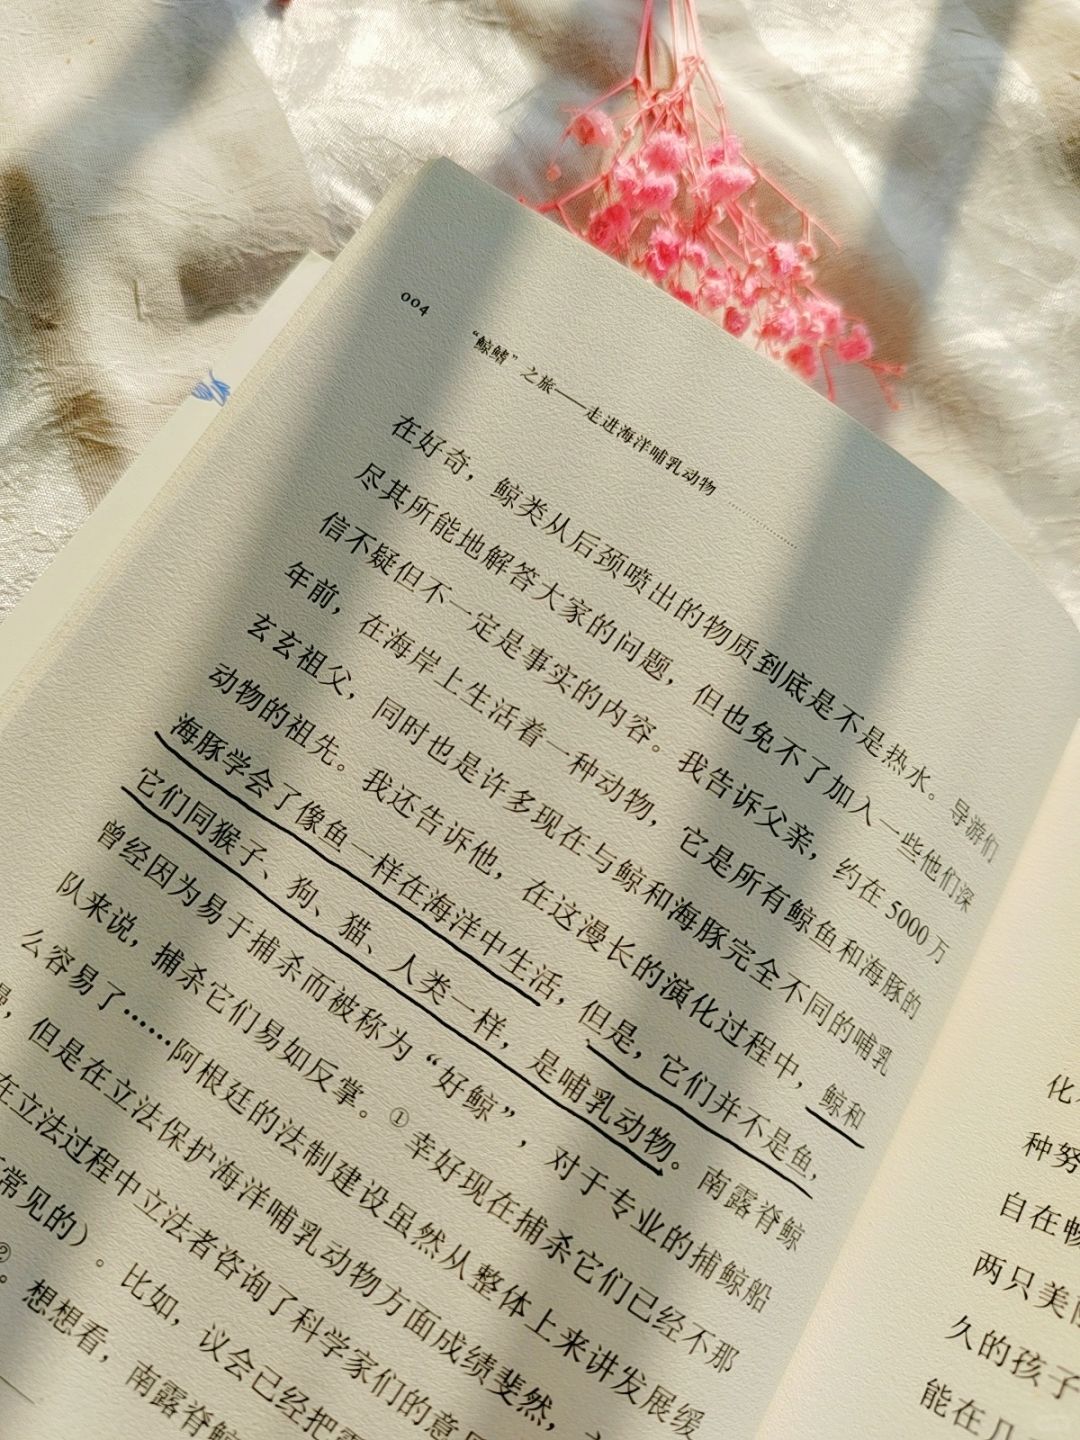 004
“鲸鳍”之旅——走进海洋哺乳动物
在好奇，鲸类从后颈喷出的物质到底是不是热水。导游们
尽其所能地解答大家的问题，但也免不了加入一些他们深
信不疑但不一定是事实的内容。我告诉父亲，约在5000万
年前，在海岸上生活着一种动物，它是所有鲸鱼和海豚的
玄玄祖父，同时也是许多现在与鲸和海豚完全不同的哺乳
动物的祖先。我还告诉他，在这漫长的演化过程中，鲸和
海豚学会了像鱼一样在海洋中生活，但是，它们并不是鱼，
它们同猴子、狗、猫、人类一样，是哺乳动物。南露脊鲸
曾经因为易于捕杀而被称为“好鲸”，对于专业的捕鲸船
队来说，捕杀它们易如反掌。①幸好现在捕杀它们已经不那
么容易了……阿根廷的法制建设虽然从整体上来讲发展缓
慢，但是在立法保护海洋哺乳动物方面成绩斐然，
在立法过程中立法者咨询了科学家们的意
常见的）。比如，议会已经把
②。想想看，南露脊鲸
化
种努
自在畅
两只美
久的孩子
能在几